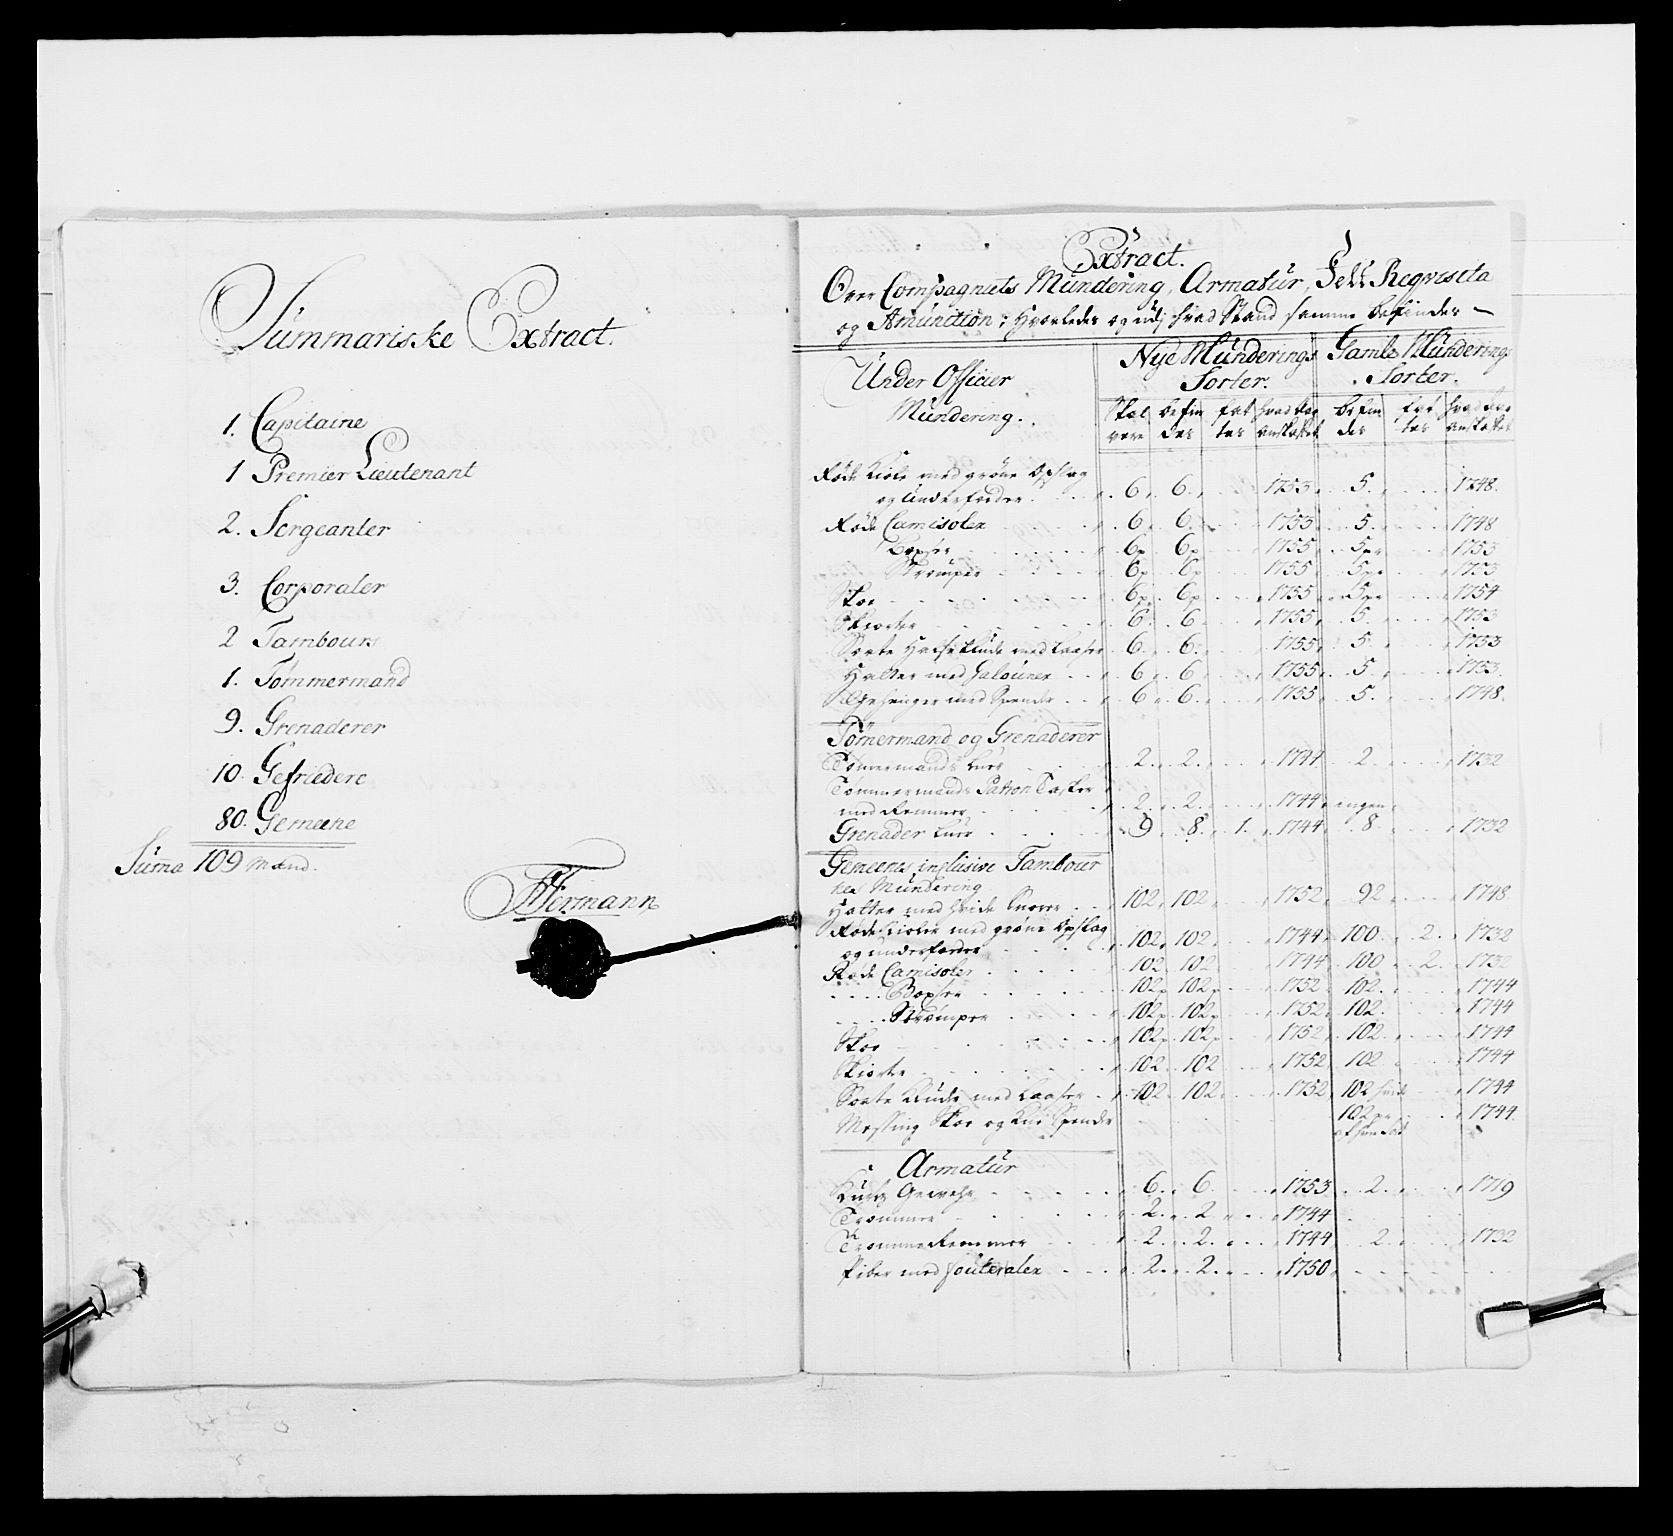 Summariske Extract.
1. Capitaine
1 Premier Lieutenant
2. Sergeanter
3. Corporaler
2 Tambours
1. Tømmermand
9. Grenaderer
10. Gefriedere
80. Gemeene
Suma 109 Mand.
Hermann
Extract.
Over Compagniets Mundering, Armatur, Felt Reqvisita
og Amunition; Hvorledes og udj hvad Stand samme befindes
Under Officier Mundering.
Nye Munderings Sorter.
Gamle Munderings Sorter.
Skal være | befindes | fattes | hvad Aar anskaffet | befindes | fattes | hvad Aar anskaffet
Røde Kiole med grøne Opslag
og Underfoeder 6. 6. 1753. 5. 1748.
Røde Camisoler 6. 6. 1753 5. 1748
Boxser 6p 6p 1755 5pr 1753
Strømper 6p 6p 1755 5pr 1753
Skoe 6p 6p 1755 5pr 1754
Skiorter 6. 6 1755 5. 1753
Sorte Halsklude med Laaser 6. 6. 1755 5. 1753
Hatter med Galouner 6. 6 1755 5 1753.
Gehenger med Spender 6 6. 1755 5. 1748.
Tømermand og Grenaderer
Tømermands Luer 2. 2. 1744 2. 1732
Tømmermands Patron Tasker
med Remmer 2. 2. 1744 ingen
Grenader Luer 9 8. 1. 1744 8. 1732
Gemeenes inclusive Tambour
nes Mundering
Hatter med hvide Snorer 102. 102 1752. 92 1748.
Røde Kioler med grøne Opslag
og underfoeder 102. 102. 1744 100. 2. 1732
Røde Camisoler 102. 102 1744 100 2. 1732
Boxser 102p 102p 1752 102. 1744
Strømper 102p 102p 1752. 102. 1744
Skoe 102p 102p 1752 102. 1744
Skiorte 102. 102 1752 102 1744
Sorte Klude med Laaser 102. 102. 1752 102 hvide 1744
Messing Skoe og Knæ Spender 102 pr 1744.
Armatur
Gewehr 6. 6. 1753 2. 1719
Trommer 2. 2. 1744
Tromme Remmer 2. 2. 1744 2. 1732
Piber med fouteraler 2. 2. 1750